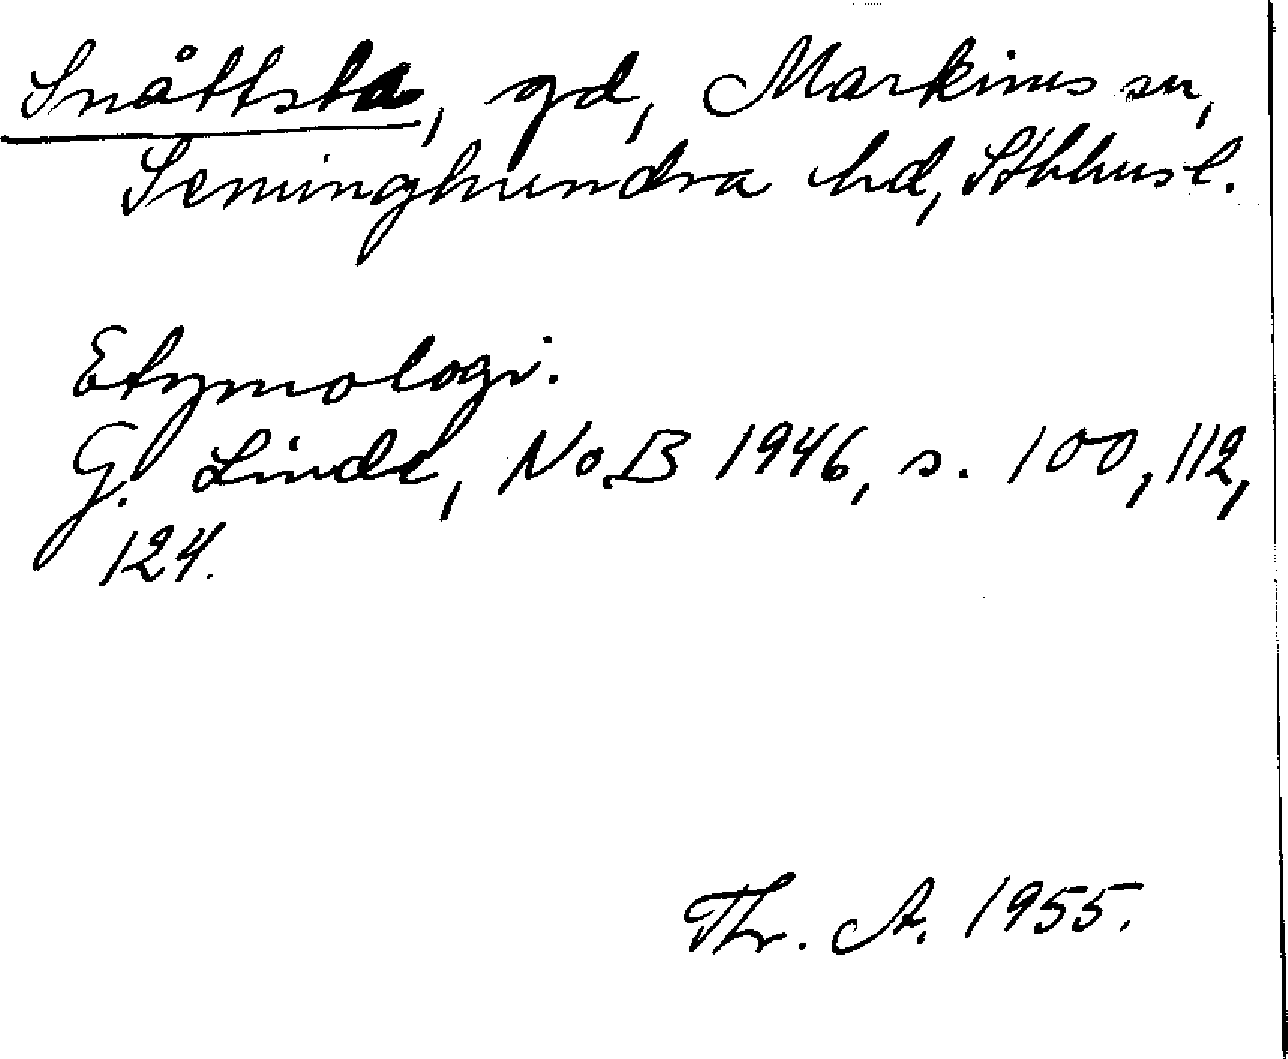 Snåttsta, gd, Markims sn,
Seminghundra hd, Sthlms l.
Etymologi.
G. Linde, NoB 1946, s. 100, 112,
124.
Thr. A. 1955.